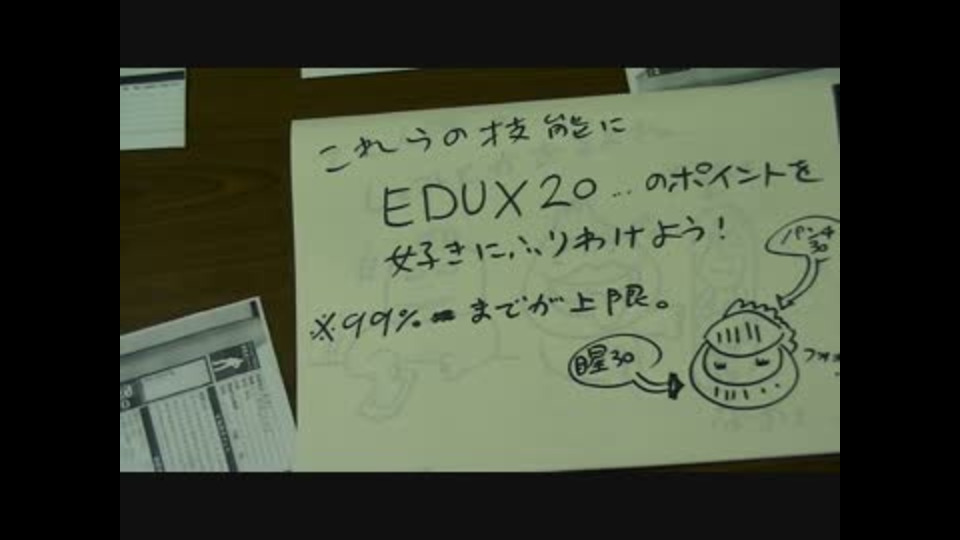 これらの技能に
EDUX20...のポイントを
好きにふりわけよう!
※99%までが上限。
パンチ
30
目星30
フォォ